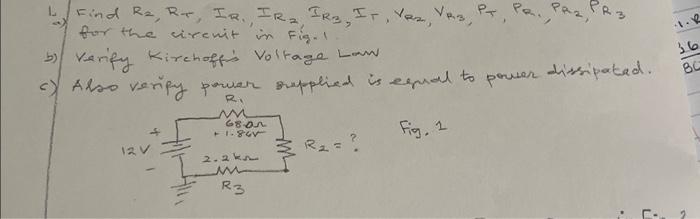 1.
a) Find R2, RT, IR1, IR2, IR3, IT, VR2, VR3, PT, PR1, PR2, PR3
for the circuit in Fig. 1.
b) Verify Kirchoff's Voltage Law
c) Also verify power supplied is equal to power dissipated.
R1
680Ω
+ 1.86V -
+
12V
-
R2 = ?
Fig. 1
2.2kΩ
R3